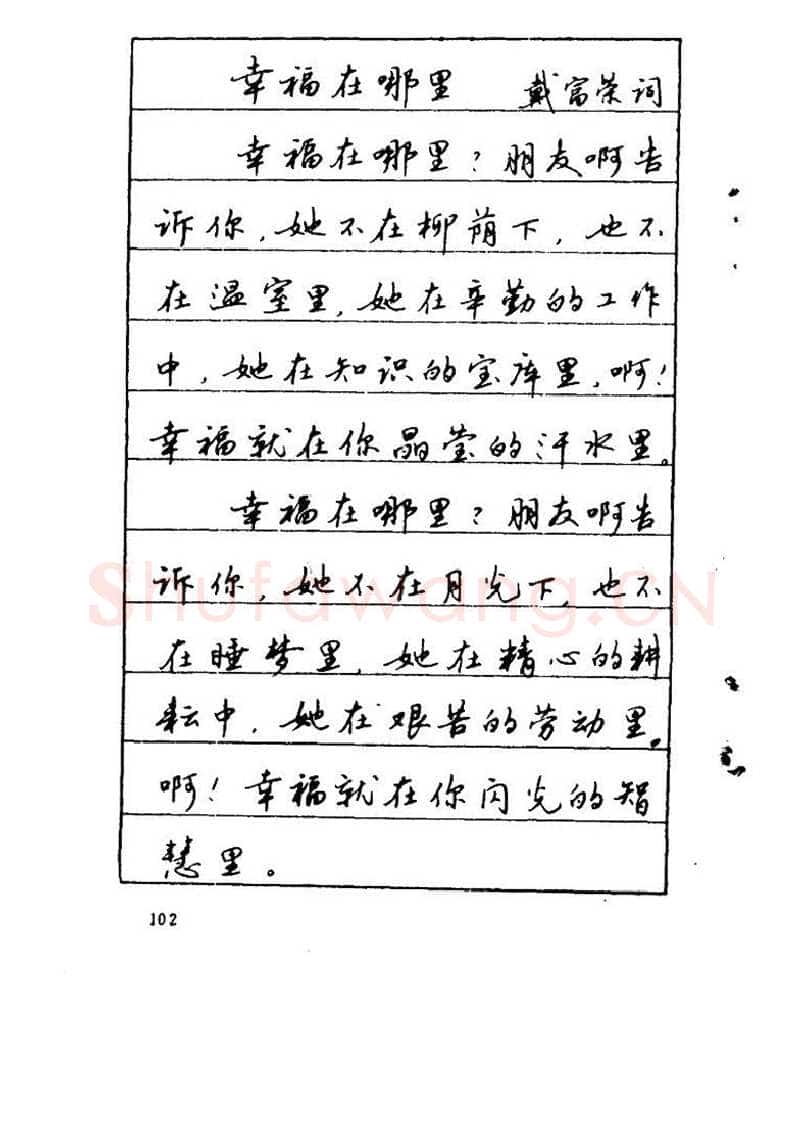 幸福在哪里 戴富荣词
幸福在哪里?朋友啊告
诉你,她不在柳荫下,也不
在温室里,她在辛勤的工作
中,她在知识的宝库里,啊!
幸福就在你晶莹的汗水里。
幸福在哪里?朋友啊告
诉你,她不在月光下,也不
在睡梦里,她在精心的耕
耘中,她在艰苦的劳动里。
啊!幸福就在你闪光的智
慧里。
102
Shufawang.CN